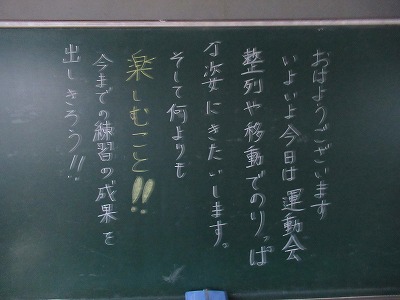 おはようございます
いよいよ今日は運動会
整列や移動でのりっぱ
な姿にきたいします。
そして何よりも
楽しむこと!!
今までの練習の成果を
出しきろう!!